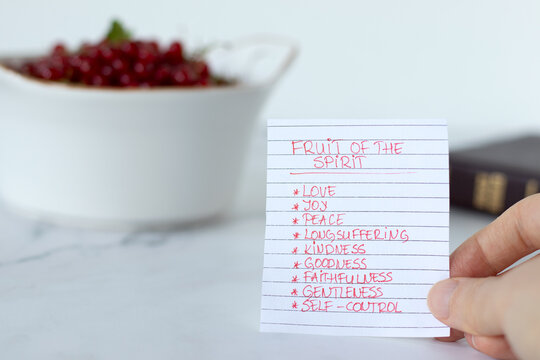 FRUIT OF THE
SPIRIT
* LOVE
* JOY
* PEACE
* LONGSUFFERING
* KINDNESS
* GOODNESS
* FAITHFULNESS
* GENTLENESS
* SELF-CONTROL